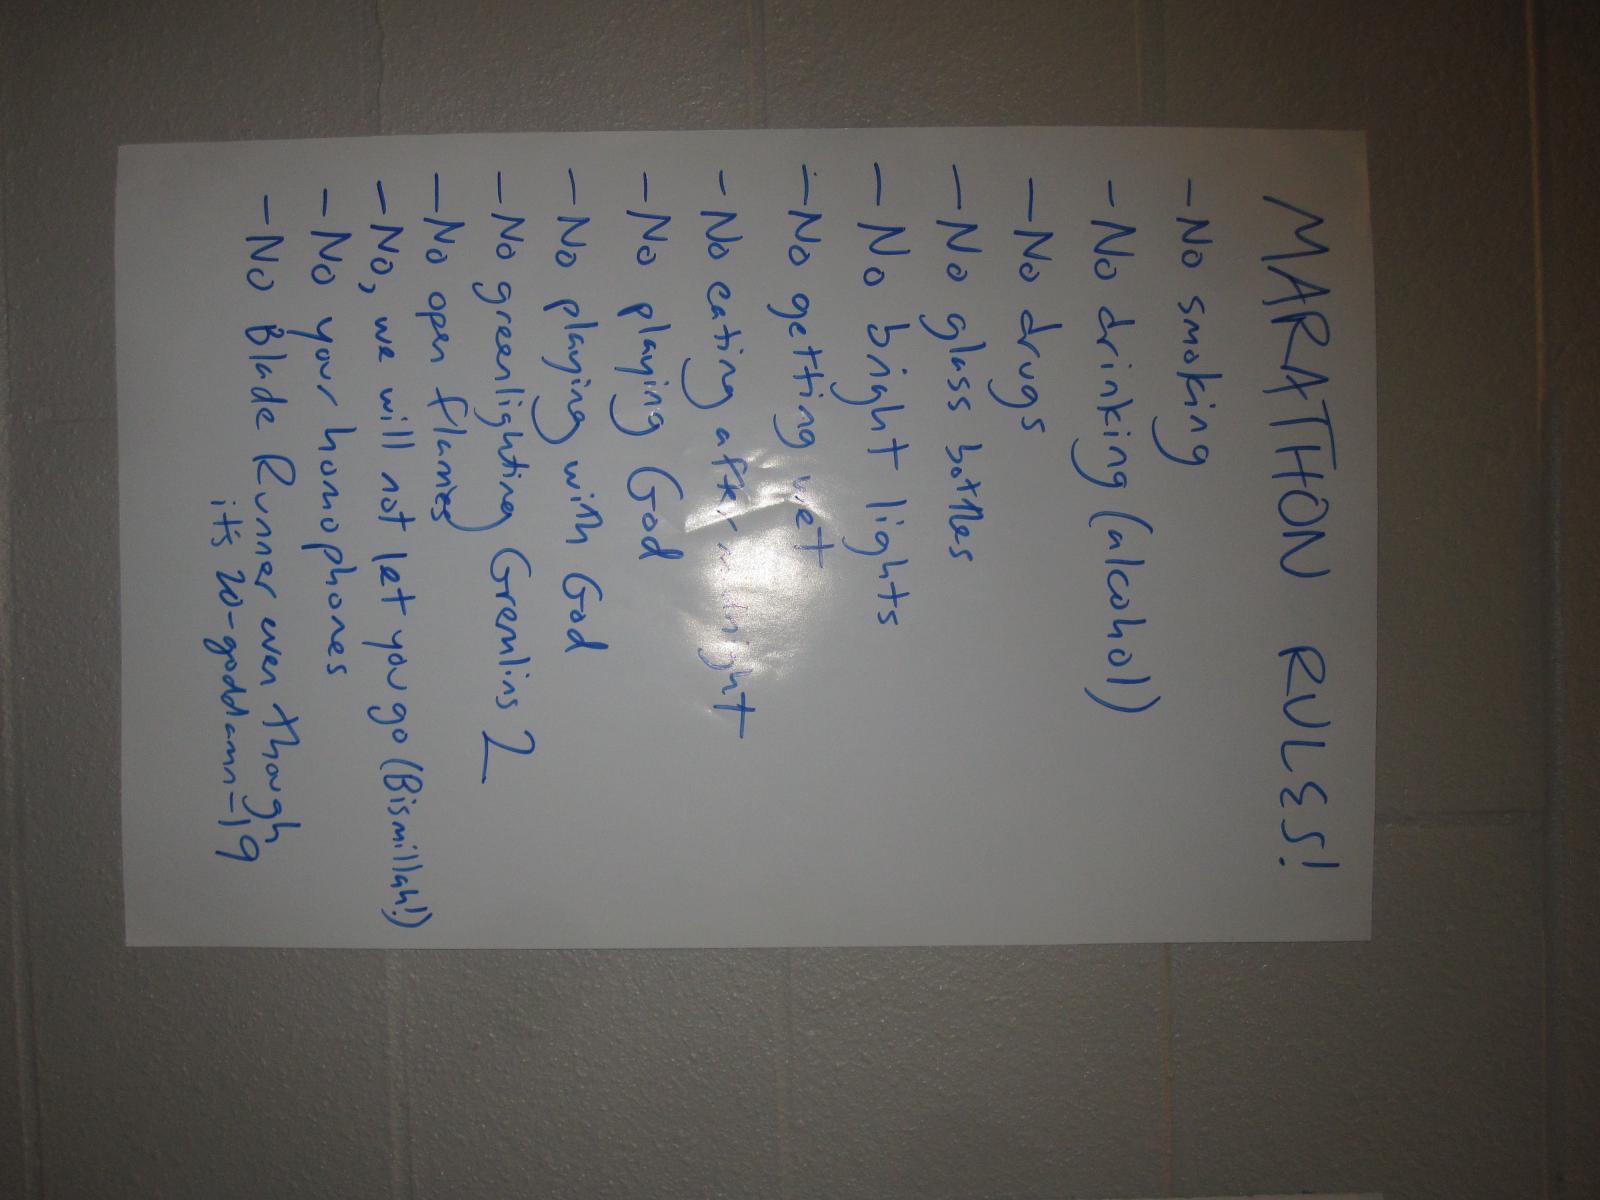 MARATHON RULES!
- No smoking
- No drinking (alcohol)
- No drugs
- No glass bottles
- No bright lights
- No getting wet
- No eating after midnight
- No playing God
- No playing with God
- No greenlighting Gremlins 2
- No open flames
- No, we will not let you go (Bismillah!)
- No your homophones
- No Blade Runner even though
it's 20-goddamn-19